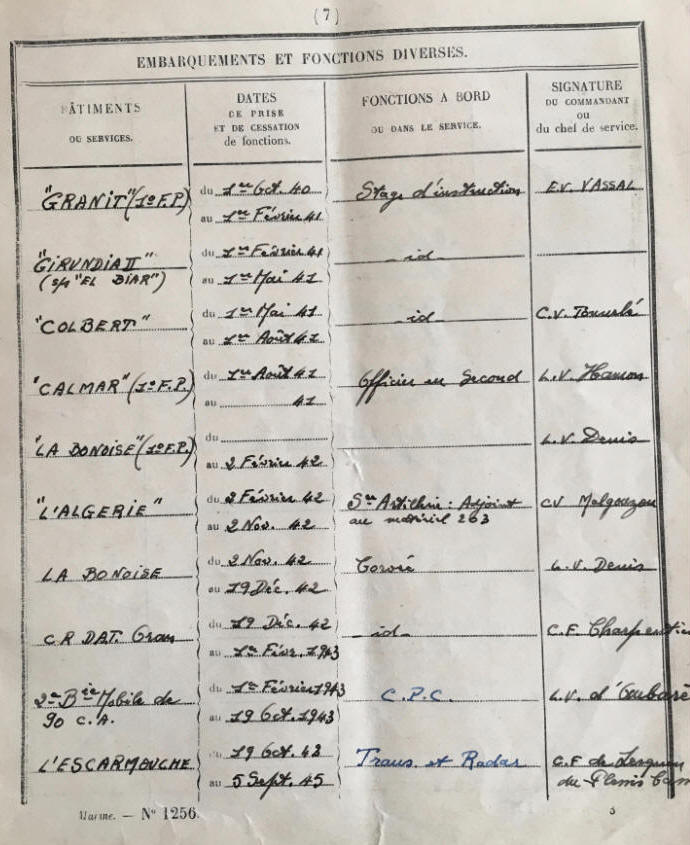 (7)
EMBARQUEMENTS ET FONCTIONS DIVERSES.
BÂTIMENTS
OU SERVICES.
DATES
DE PRISE
ET DE CESSATION
de fonctions.
FONCTIONS A BORD
OU DANS LE SERVICE.
SIGNATURE
DU COMMANDANT
ou
du chef de service.
"GRANIT" (1º F.P)
du 1er Oct. 40
au 1er Février 41
Stage d'instruction
E.V. VASSAL
"GIRUNDIA II"
(s/s "EL BIAR")
du 1er Février 41
au 1er Mai 41
_id_
"COLBERT"
du 1er Mai 41
au 1er Août 41
_id_
C.V.
"CALMAR" (1º F.P.)
du 1er Août 41
au 41
Officier en Second
L.V. Hamon
"LA BONOISE" (1º F.P.)
du
au 2 Février 42
L.V. Denis
"L'ALGERIE"
du 2 Février 42
au 2 Nov. 42
Sce Artillerie : Adjoint
au matériel 263
CV Malgouzou
LA BONOISE
du 2 Nov. 42
au 19 Déc. 42
L.V. Denis
C R DAT. Oran
du 19 Déc. 42
au 1er Févr. 1943
_id_
C.F. Charpentier
2e Bie Mobile de
90 C.A.
du 1er Février 1943
au 19 Oct. 1943
C.P.C.
L.V.
L'ESCARMOUCHE
du 19 Oct. 43
au 5 Sept. 45
Trans. et Radar
C.F de
du Plessis
Marine. — Nº 1256.